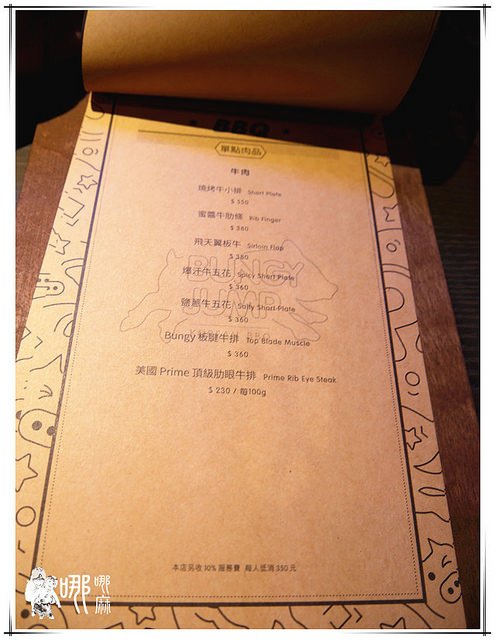 BBQ
單點肉品
牛肉
燒烤牛小排 Short Plate
$ 550
蜜醬牛肋條 Rib Finger
$ 360
飛天翼板牛 Sirloin Flap
$ 380
爆汁牛五花 Spicy Short Plate
$ 360
鹽蔥牛五花 Salty Short Plate
$ 360
Bungy 板腱牛排 Top Blade Muscle
$ 360
美國 Prime 頂級肋眼牛排 Prime Rib Eye Steak
$ 230 / 每100g
BUNGY
JUMP
本店另收 10% 服務費 每人低消 350 元
哪哪麻